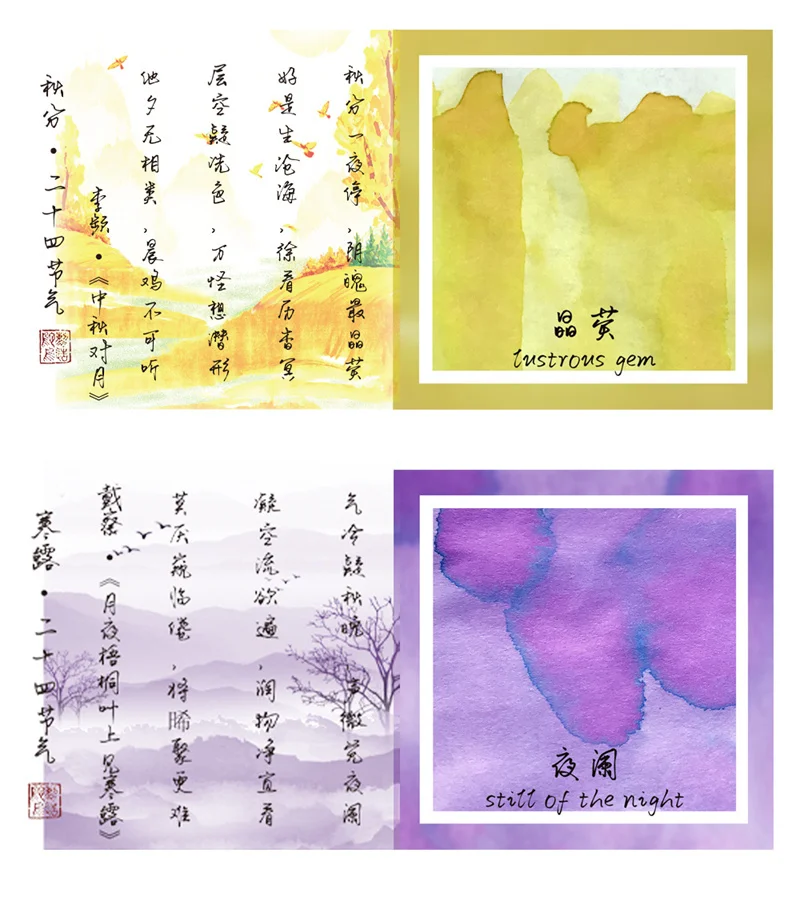 秋分一夜停,阴魄最晶荧
好是生沧海,徐看历杳冥
层空疑洗色,万怪想潜形
他夕无相类,晨鸡不可听
李频•《中秋对月》
秋分•二十四节气
晶荧
lustrous gem
气冷疑秋晚,声微觉夜阑
凝空流欲遍,润物净宜看
莫厌窥临倦,将晞聚更难
戴察•《月夜梧桐叶上见寒露》
寒露•二十四节气
夜阑
still of the night